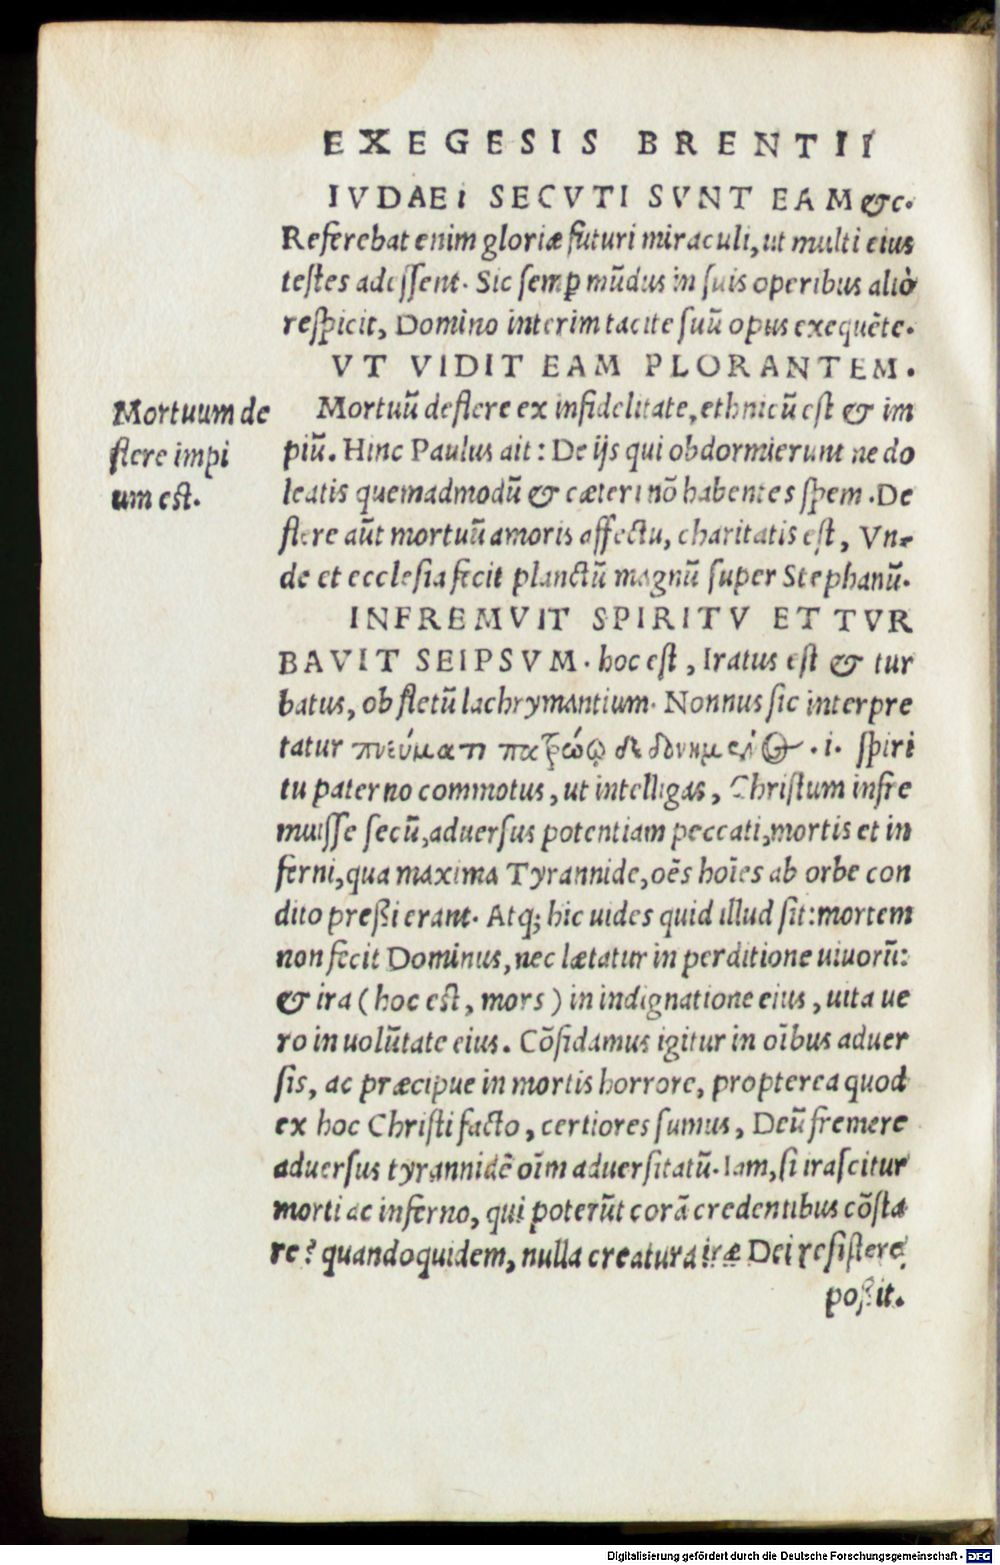 EXEGESIS BRENTII
IVDAEI SECVTI SVNT EAM &c.
Referebat enim gloriæ futuri miraculi, ut multi eius
testes adessent. Sic semꝑ mũdus in suis operibus aliò
respicit, Domino interim tacite suũ opus exequẽte.
VT VIDIT EAM PLORANTEM.
Mortuum de
flere impi
um est.
Mortuũ deflere ex infidelitate, ethnicũ est & im
piũ. Hinc Paulus ait: De ijs qui obdormierunt ne do
leatis quemadmodũ & cæteri nõ habentes spem. De
flere aũt mortuũ amoris affectu, charitatis est, Vn-
de et ecclesia fecit planctũ magnũ super Stephanũ.
INFREMVIT SPIRITV ET TVR
BAVIT SEIPSVM. hoc est, Iratus est & tur
batus, ob fletũ lachrymantium. Nonnus sic interpre
tatur πνεύματι πατρώῳ δεδονημένος .i. spiri
tu paterno commotus, ut intelligas, Christum infre
muisse secũ, aduersus potentiam peccati, mortis et in
ferni, qua maxima Tyrannide, oẽs hoĩes ab orbe con
dito preßi erant. Atq; hic uides quid illud sit: mortem
non fecit Dominus, nec lætatur in perditione uiuorũ:
& ira (hoc est, mors) in indignatione eius, uita ue
ro in uolũtate eius. Cõfidamus igitur in oĩbus aduer
sis, ac præcipue in mortis horrore, propterea quod
ex hoc Christi facto, certiores sumus, Deũ fremere
aduersus tyrannidẽ oĩm aduersitatũ. Iam, si irascitur
morti ac inferno, qui poterũt corã credentibus cõsta
re? quandoquidem, nulla creatura iræ Dei resistere
poßit.
Digitalisierung gefördert durch die Deutsche Forschungsgemeinschaft - DFG